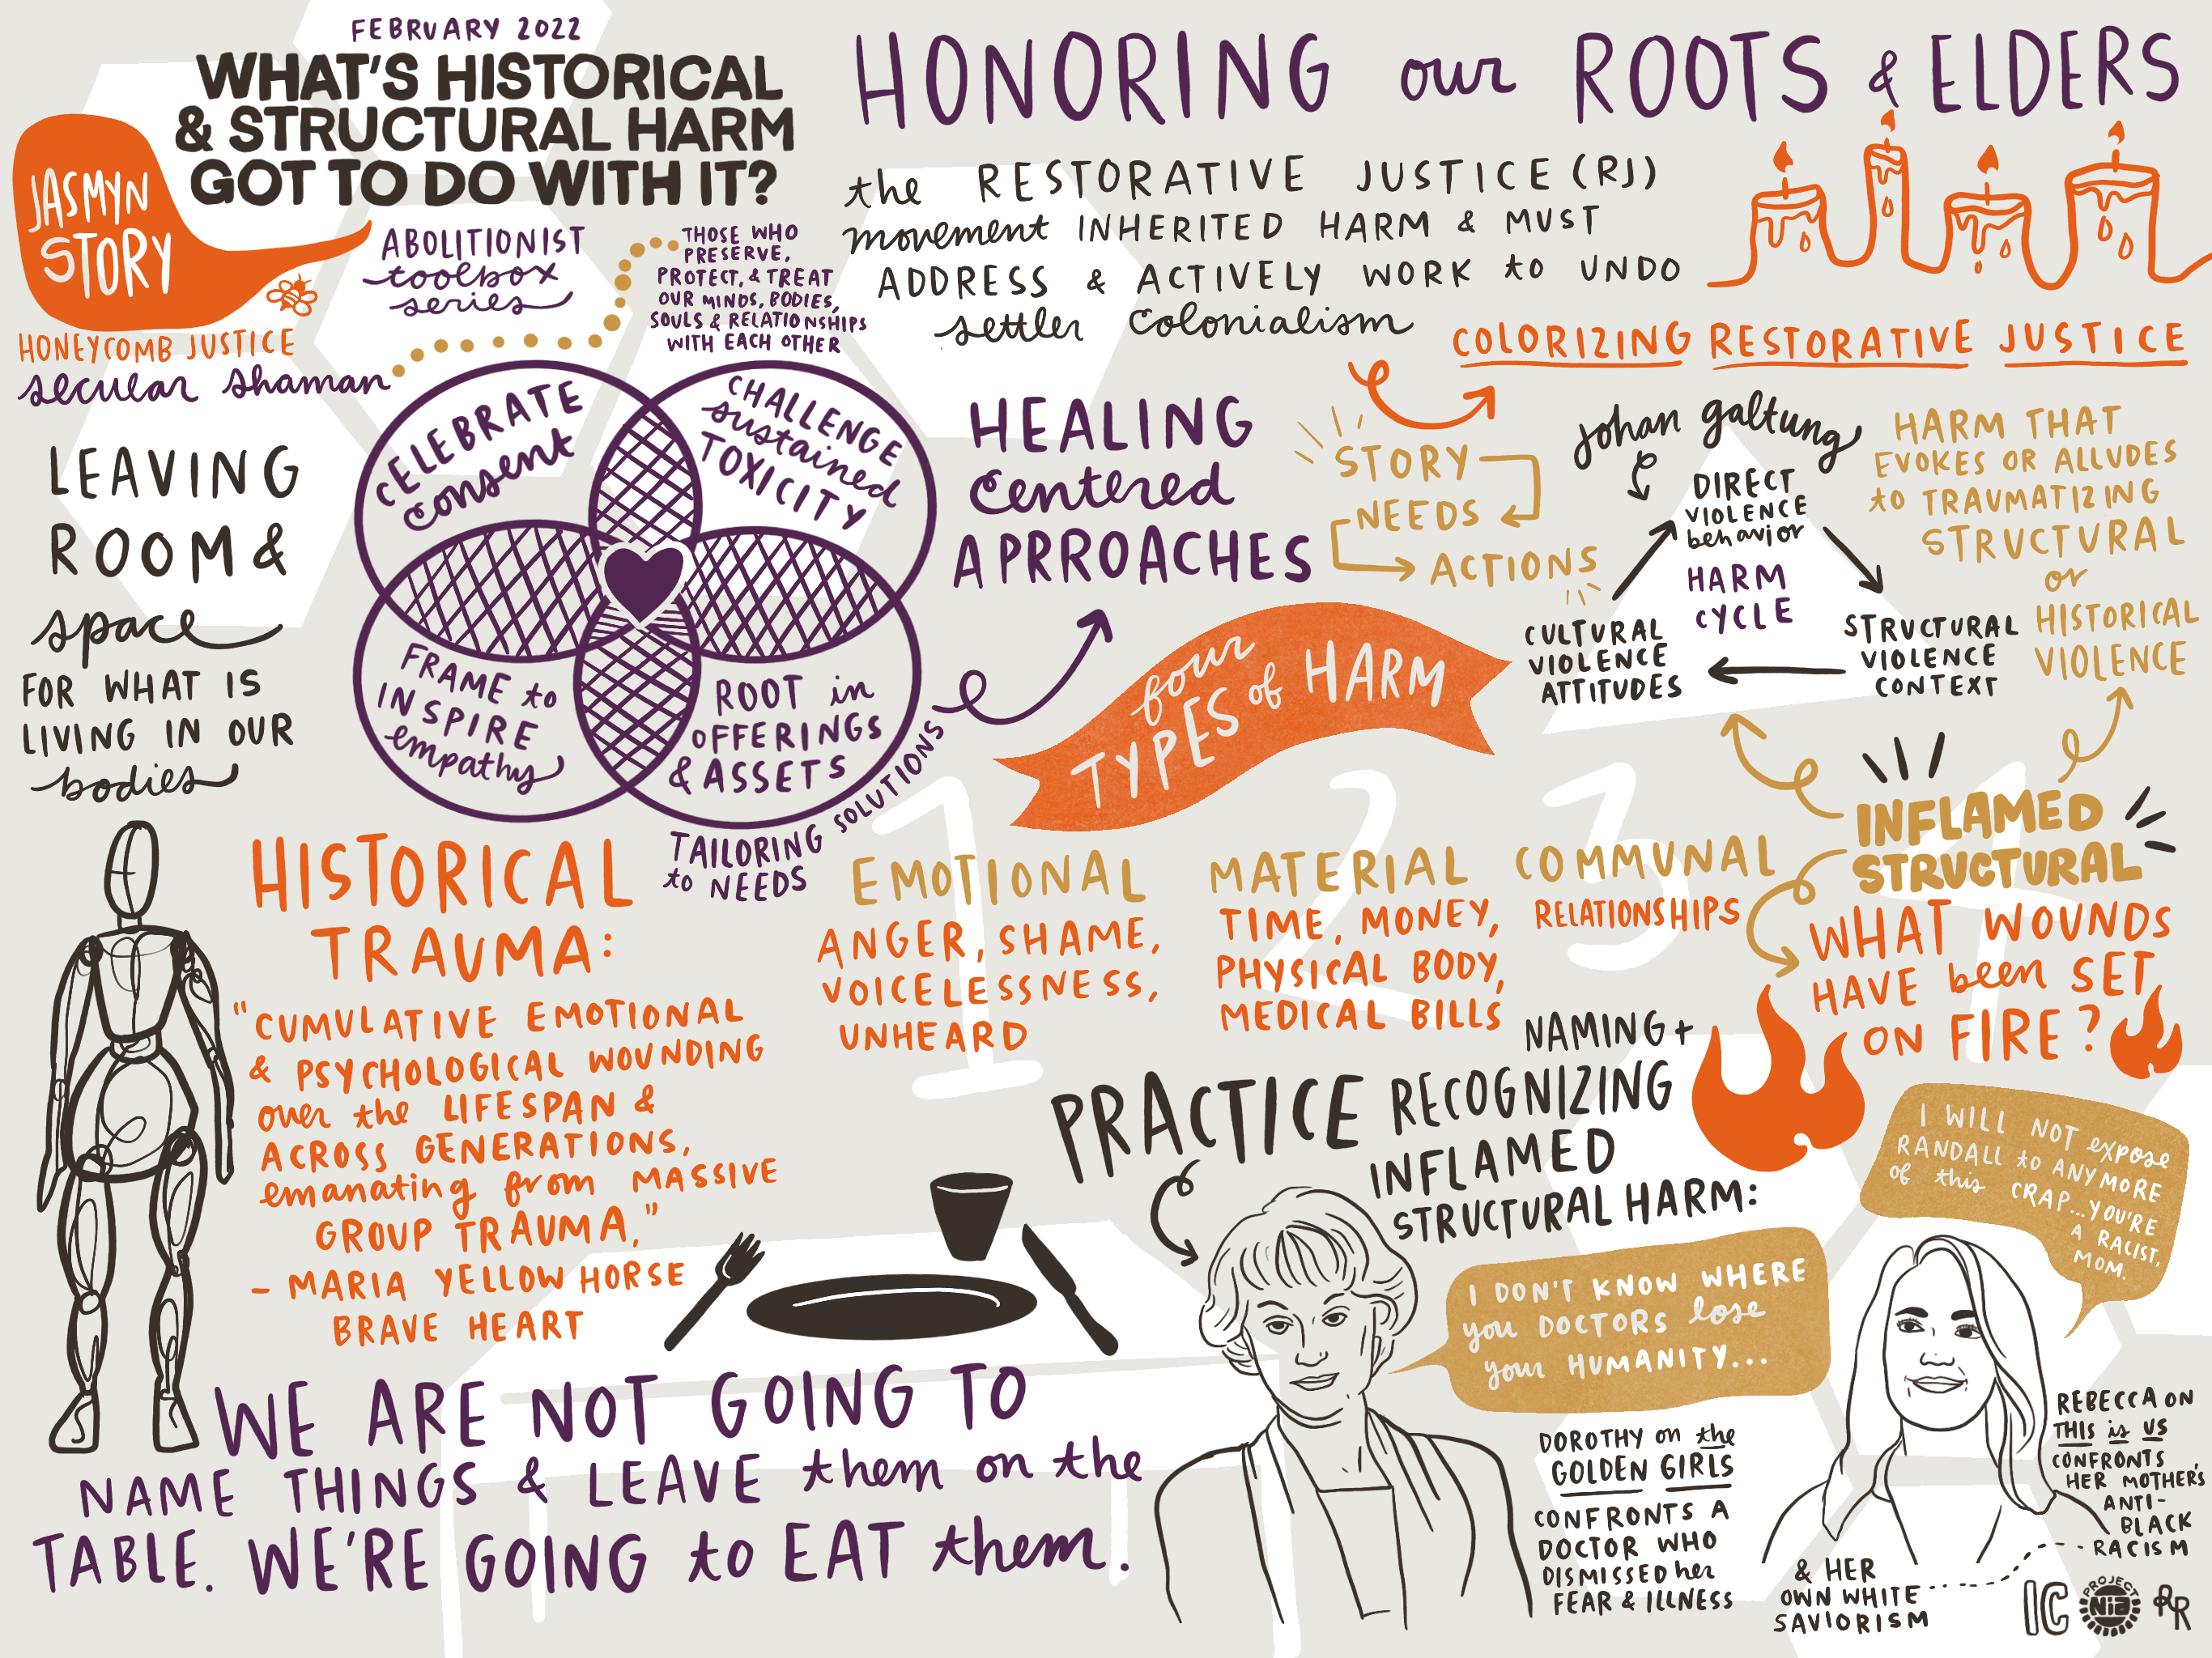 FEBRUARY 2022
WHAT'S HISTORICAL
& STRUCTURAL HARM
GOT TO DO WITH IT?
JASMYN
STORY
HONEYCOMB JUSTICE
secular shaman
ABOLITIONIST
toolbox
series
THOSE WHO
PRESERVE,
PROTECT, & TREAT
OUR MINDS, BODIES,
SOULS & RELATIONSHIPS
WITH EACH OTHER
HONORING our ROOTS & ELDERS
the RESTORATIVE JUSTICE (RJ)
movement INHERITED HARM & MUST
ADDRESS & ACTIVELY WORK to UNDO
settler colonialism
COLORIZING RESTORATIVE JUSTICE
LEAVING
ROOM &
space
FOR WHAT IS
LIVING IN OUR
bodies
CELEBRATE
consent
CHALLENGE
sustained
TOXICITY
FRAME to
INSPIRE
empathy
ROOT in
OFFERINGS
& ASSETS
TAILORING SOLUTIONS
to NEEDS
HEALING
centered
APRROACHES
STORY
NEEDS
ACTIONS
johan galtung
DIRECT
VIOLENCE
behavior
HARM
CYCLE
CULTURAL
VIOLENCE
ATTITUDES
STRUCTURAL
VIOLENCE
CONTEXT
HARM THAT
EVOKES OR ALLUDES
to TRAUMATIZING
STRUCTURAL
or
HISTORICAL
VIOLENCE
four
TYPES of HARM
1
EMOTIONAL
ANGER, SHAME,
VOICELESSNESS,
UNHEARD
2
MATERIAL
TIME, MONEY,
PHYSICAL BODY,
MEDICAL BILLS
3
COMMUNAL
RELATIONSHIPS
4
INFLAMED
STRUCTURAL
WHAT WOUNDS
HAVE been SET
ON FIRE?
HISTORICAL
TRAUMA:
"CUMULATIVE EMOTIONAL
& PSYCHOLOGICAL WOUNDING
over the LIFESPAN &
ACROSS GENERATIONS,
emanating from MASSIVE
GROUP TRAUMA,"
- MARIA YELLOW HORSE
BRAVE HEART
WE ARE NOT GOING TO
NAME THINGS & LEAVE them on the
TABLE. WE'RE GOING to EAT them.
NAMING +
PRACTICE RECOGNIZING
INFLAMED
STRUCTURAL HARM:
I DON'T KNOW WHERE
you DOCTORS lose
your HUMANITY...
DOROTHY on the
GOLDEN GIRLS
CONFRONTS A
DOCTOR WHO
DISMISSED her
FEAR & ILLNESS
I WILL NOT expose
RANDALL to ANYMORE
of this CRAP... YOU'RE
A RACIST,
MOM.
REBECCA ON
THIS is US
CONFRONTS
HER MOTHER'S
ANTI-
BLACK
RACISM
& HER
OWN WHITE
SAVIORISM
IC
PROJECT
NIA
RR